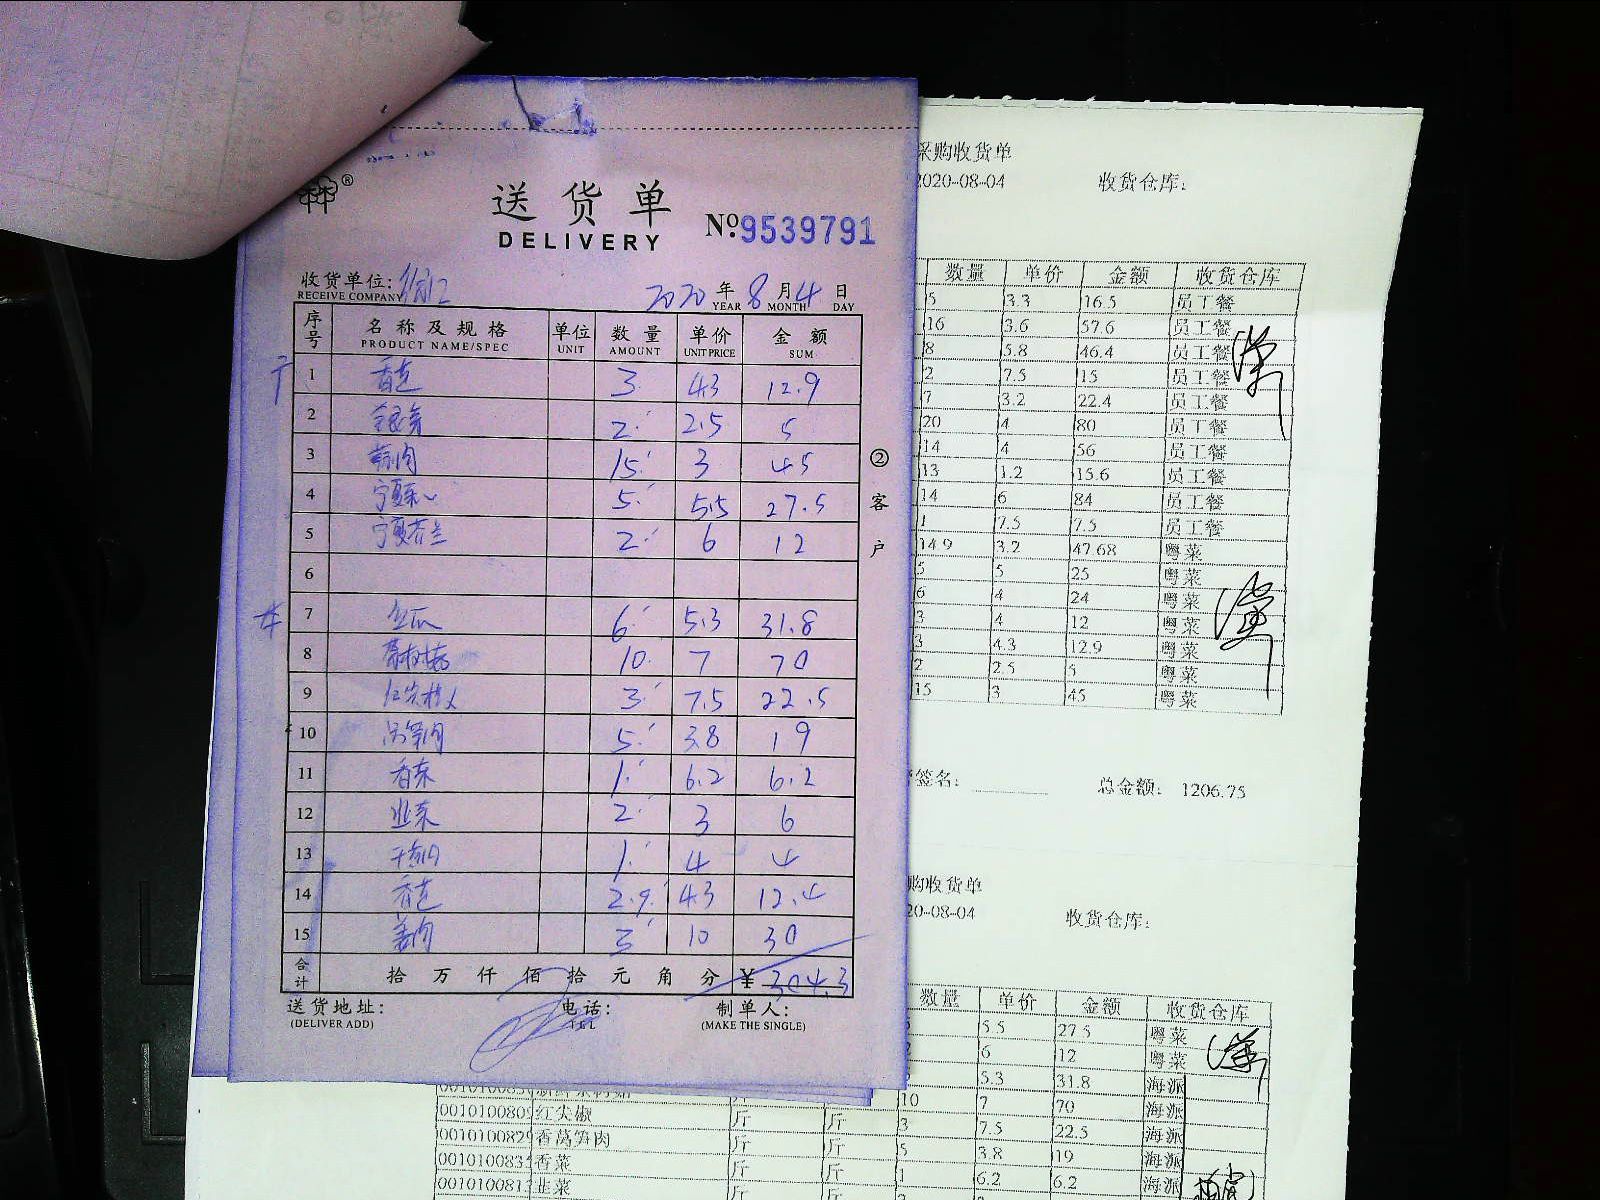 送货单
DELIVERY
№9539791
收货单位:
RECEIVE COMPANY
2020年8月4日
YEAR MONTH DAY
序号 名称及规格 单位 数量 单价 金额
PRODUCT NAME/SPEC UNIT AMOUNT UNIT PRICE SUM
1 香芒 3 4.3 12.9
2 2 2.5 5
3 15 3 45
4 宁夏菜心 5 5.5 27.5
5 宁夏芥兰 2 6 12
6
7 丝瓜 6 5.3 31.8
8 10 7 70
9 3 7.5 22.5
10 5 3.8 19
11 香菜 1 6.2 6.2
12 韭菜 2 3 6
13 1 4 4
14 香芒 2.9 4.3 12.4
15 姜肉 3 10 30
合计 拾万仟佰拾元角分 ¥304.3
送货地址: 电话: 制单人:
(DELIVER ADD) TEL (MAKE THE SINGLE)
②客户
采购收货单
2020-08-04 收货仓库:
数量 单价 金额 收货仓库
5 3.3 16.5 员工餐
16 3.6 57.6 员工餐
8 5.8 46.4 员工餐
2 7.5 15 员工餐
7 3.2 22.4 员工餐
20 4 80 员工餐
14 4 56 员工餐
13 1.2 15.6 员工餐
14 6 84 员工餐
1 7.5 7.5 员工餐
14.9 3.2 47.68 粤菜
5 5 25 粤菜
6 4 24 粤菜
3 4 12 粤菜
3 4.3 12.9 粤菜
2 2.5 5 粤菜
15 3 45 粤菜
签名: 总金额: 1206.75
购收货单
20-08-04 收货仓库:
数量 单价 金额 收货仓库
5.5 27.5 粤菜
6 12 粤菜
5.3 31.8 海派
10 7 70 海派
红尖椒 斤 斤 3 7.5 22.5 海派
香莴笋肉 斤 斤 5 3.8 19 海派
香菜 斤 斤 1 6.2 6.2 海派
韭菜 斤 斤